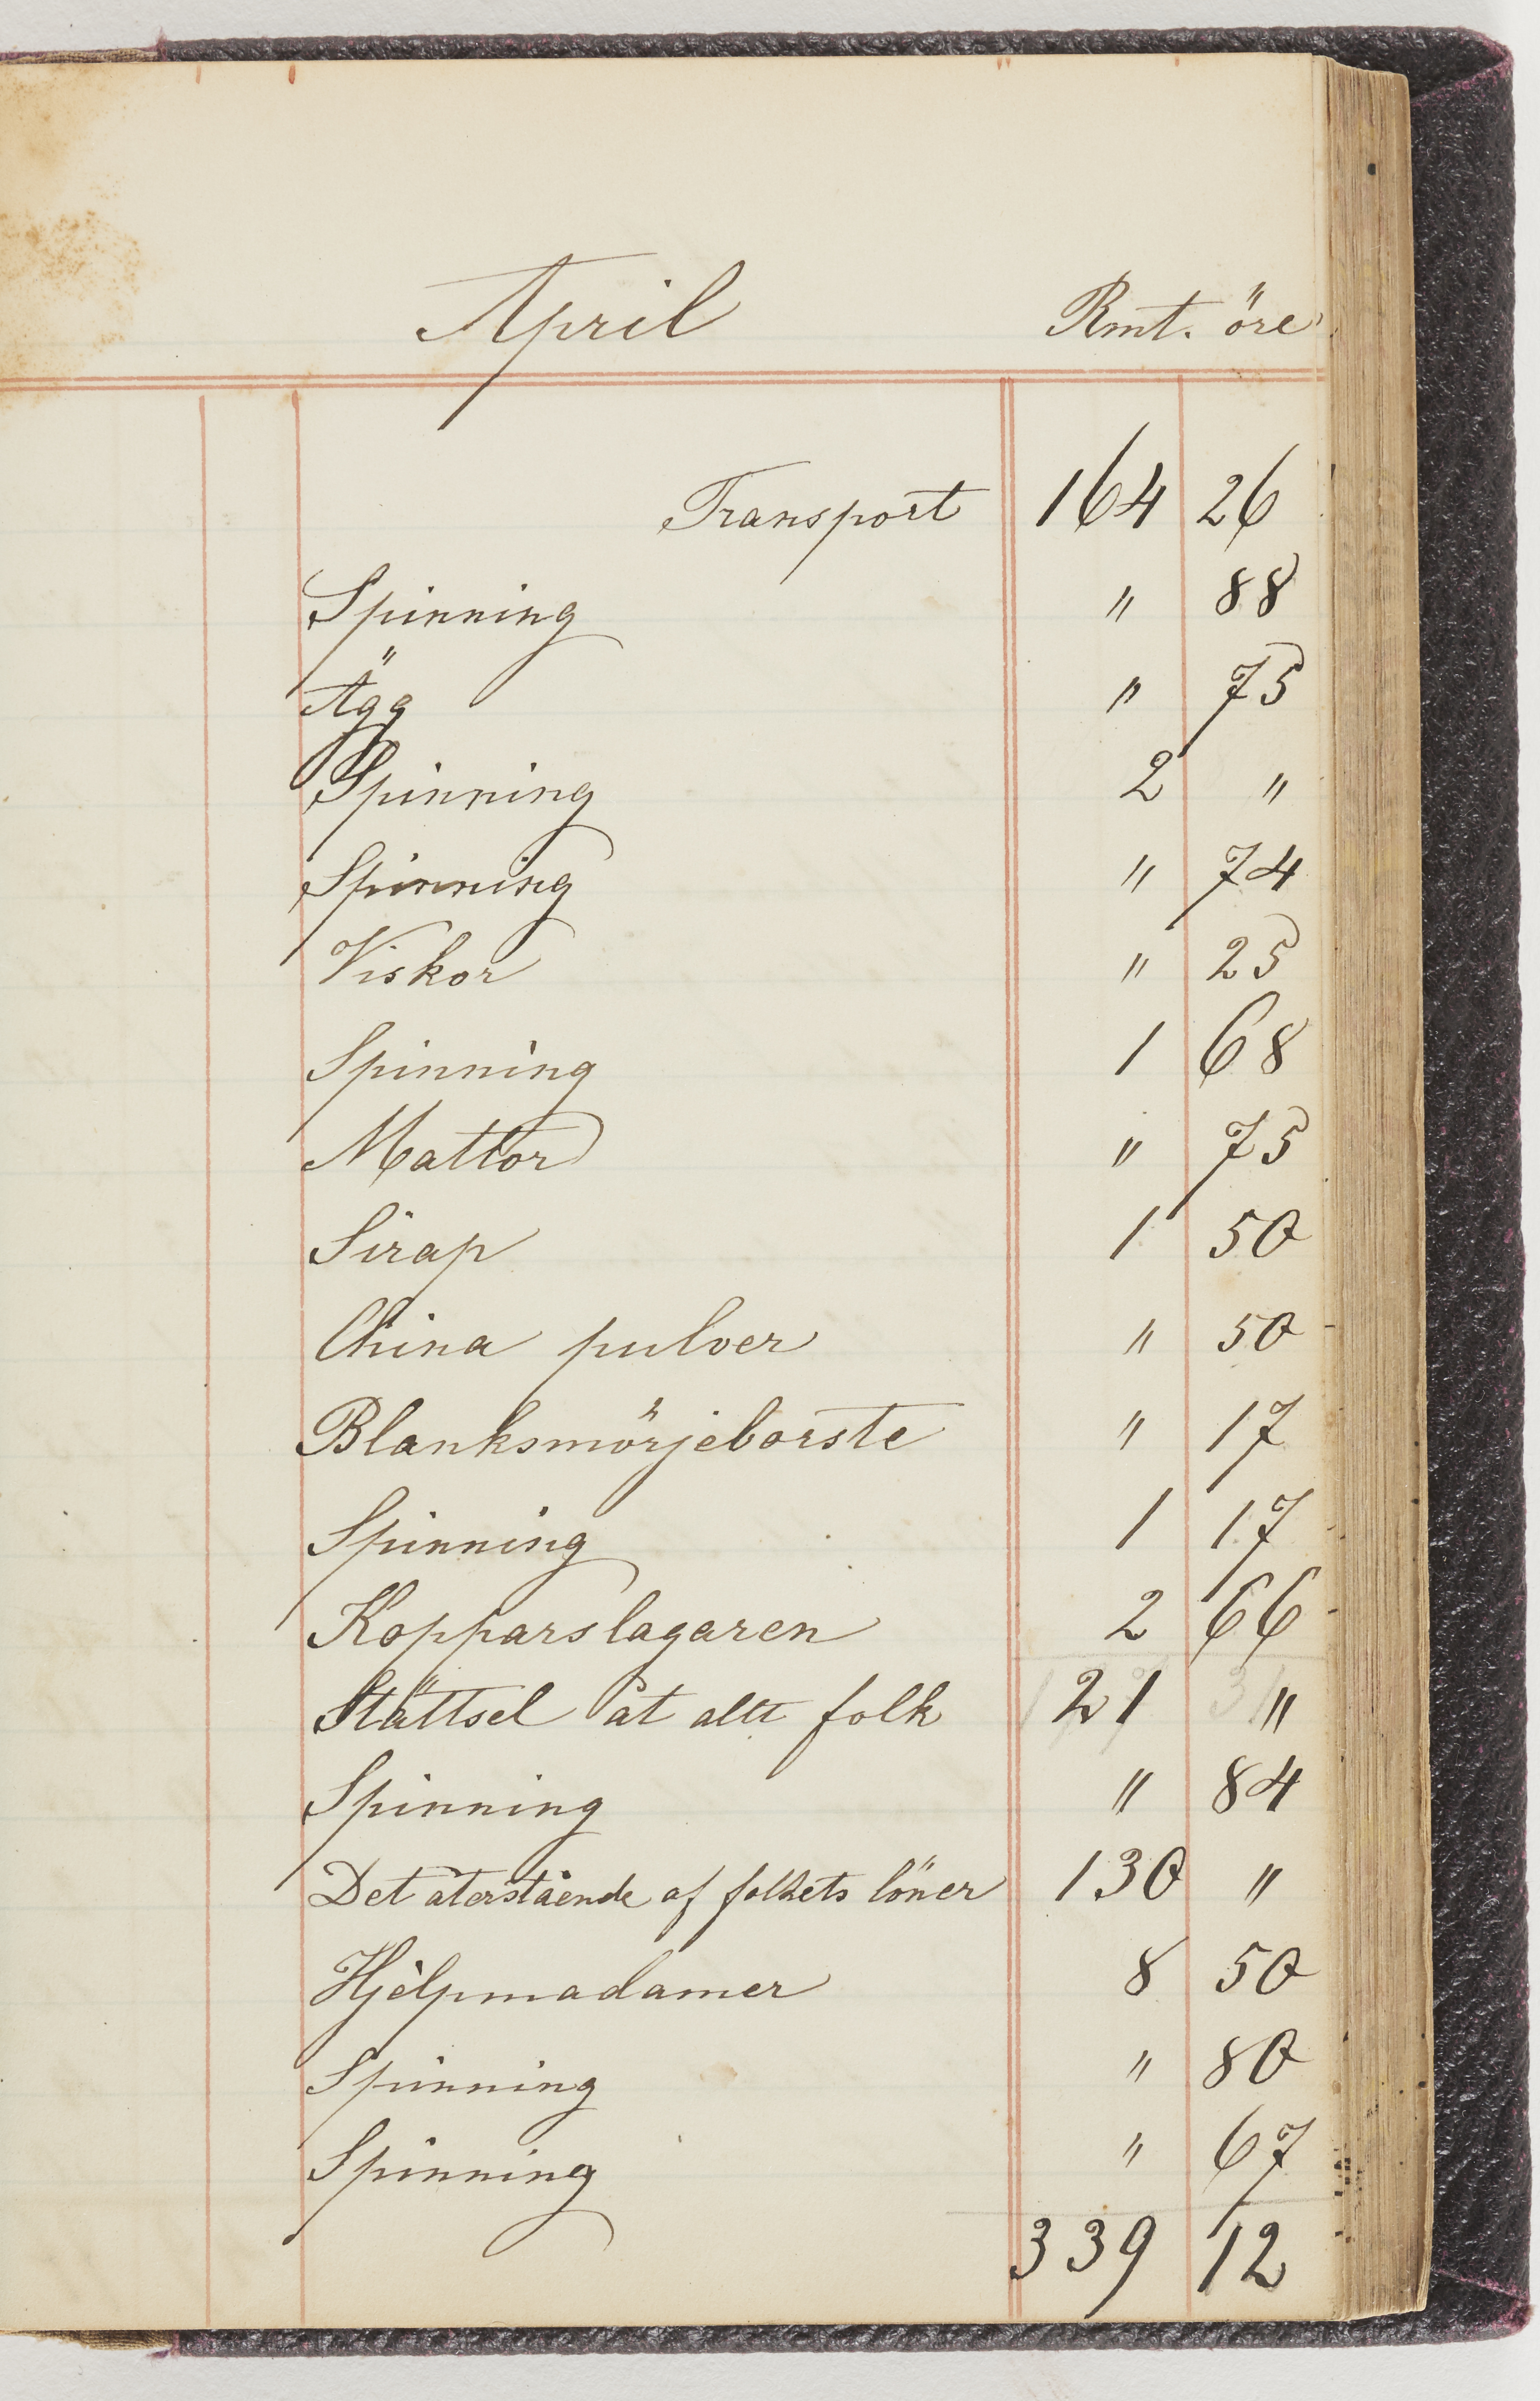 April Rmt. öre
Transport 164 26
Spinning " 88
Ägg " 75
Spinning 2 "
Spinning " 74
Viskor " 25
Spinning 1 68
Mattor " 75
Sirap 1 50
China pulver " 50
Blanksmörjeborste " 17
Spinning 1 17
Kopparslagaren 2 66
Stättsel åt allt folk 21 "
Spinning " 84
Det återstående af folkets löner 130 "
Hjelpmadamer 8 50
Spinning " 80
Spinning " 67
339 12